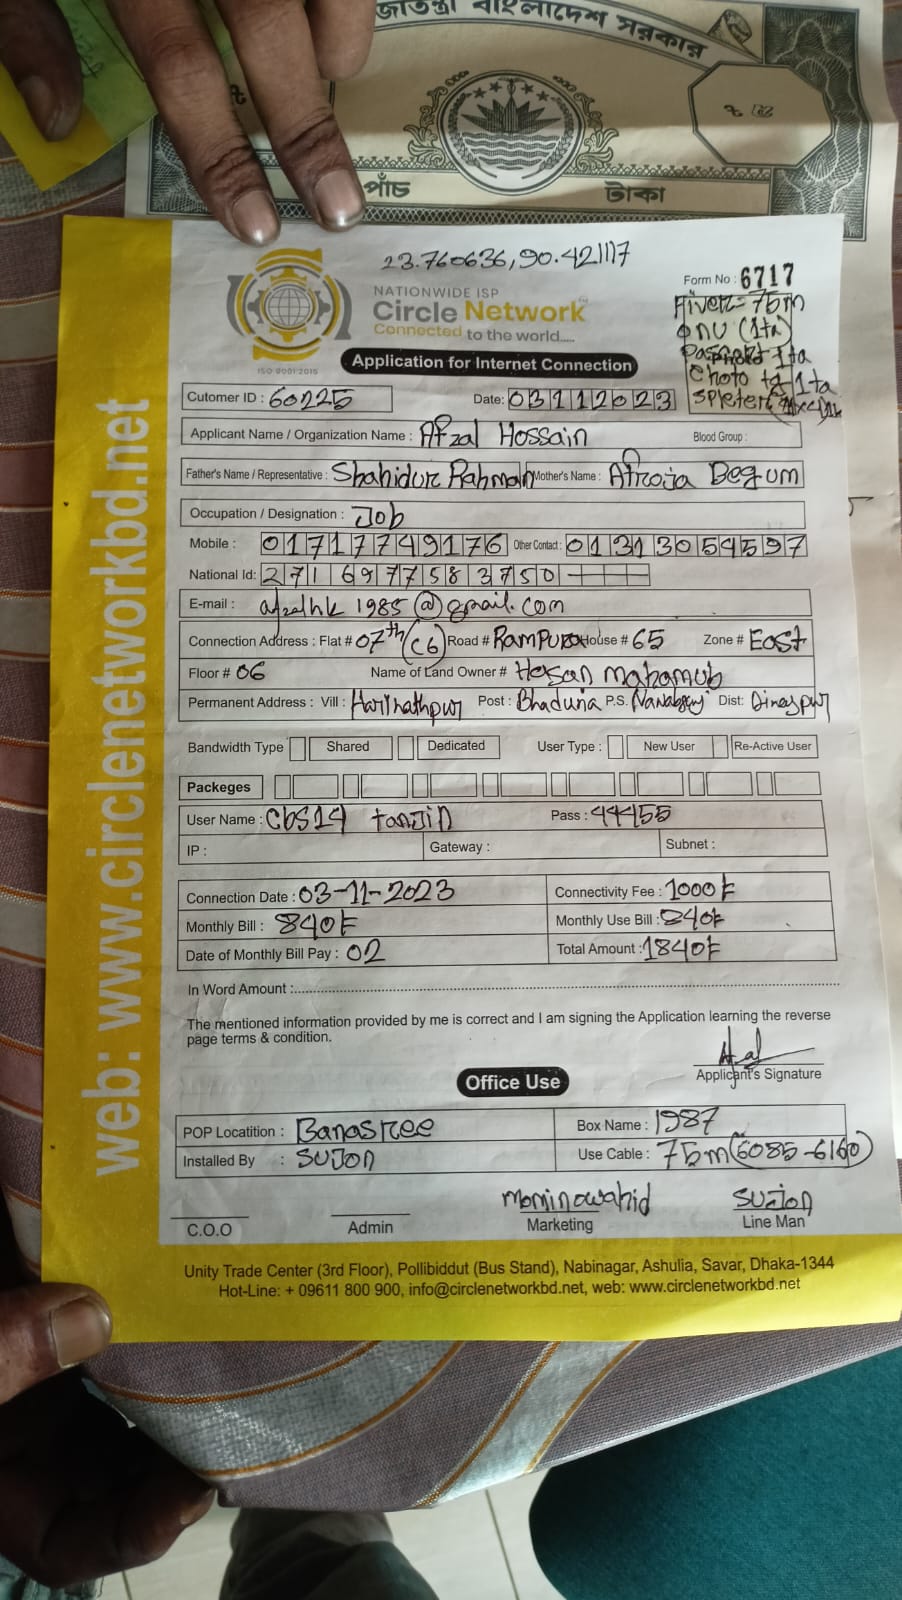 জাতন্ত্রী বাংলাদেশ সরকার
পাঁচ টাকা
23.760636,90.421117
NATIONWIDE ISP
Circle Network
Connected to the world.....
ISO 9001:2015
Form No : 6717
Fiver= 75m
onu (1ta)
1ta
choto tg 1ta
spleter
Application for Internet Connection
Cutomer ID : 60225
Date: 03112023
Applicant Name / Organization Name : Afzal Hossain Blood Group :
Father's Name / Representative : Shahidur Rahman Mother's Name : Afroja Begum
Occupation / Designation : Job
Mobile : 01717749176 Other Contact : 01313054597
National Id: 2716977583750
E-mail : afzalhk1985@gmail.com
Connection Address : Flat # 07th (C6) Road # Rampura House # 65 Zone # East
Floor # 06 Name of Land Owner # Hasan Mahamub
Permanent Address : Vill : Harinathpur Post : Bhaduria P.S. Nawabgonj Dist: Dinajpur
Bandwidth Type Shared Dedicated User Type : New User Re-Active User
Packeges
User Name : Cbs14 tanjin Pass : 44455
IP : Gateway : Subnet :
Connection Date : 03-11-2023 Connectivity Fee : 1000/-
Monthly Bill : 840/- Monthly Use Bill : 840/-
Date of Monthly Bill Pay : 02 Total Amount : 1840/-
In Word Amount :
The mentioned information provided by me is correct and I am signing the Application learning the reverse
page terms & condition.
Applicant's Signature
Office Use
POP Locatition : Banasree Box Name : 1987
Installed By : SUJon Use Cable : 75m (6085-6160)
Mominowahid SUJon
C.O.O Admin Marketing Line Man
Unity Trade Center (3rd Floor), Pollibiddut (Bus Stand), Nabinagar, Ashulia, Savar, Dhaka-1344
Hot-Line: + 09611 800 900, info@circlenetworkbd.net, web: www.circlenetworkbd.net
web: www.circlenetworkbd.net